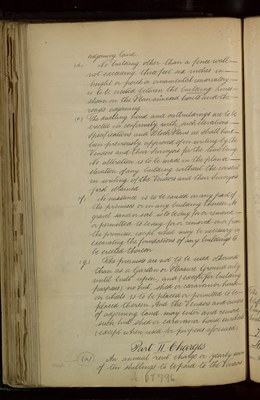 adjoining land.
(d) No building other than a fence wall
not exceeding three feet six inches in
height or porch or ornamental conservatory
is to be erected between the building lines
shown on the Plan and land and the
roads adjoining
(e) The dwelling house and outbuildings are to be
erected in conformity with such elevations and
specifications and Block Plans as shall have
been previously approved of in writing by the
Vendors and their Surveyor for the time being
No alteration is to be made in the plan or
elevation of any building without the consent
in writing of the Vendors and their Surveyor
first obtained
(f) No nuisance is to be caused on any part of
the premises or in any building thereon No
gravel sand or soil is to be dug for removal
or permitted to be dug for removal from
the premises except what may be necessary in
excavating the foundations of any buildings to
be erected thereon
(g) The premises are not to be used otherwise
than as a Garden or Pleasure Ground only
until built upon and (except for building
purposes) no hut, shed or caravan
on wheels is to be placed or permitted to be
placed thereon And the Vendors and owners
of adjoining land may enter and remove
such hut, shed or caravan
(except when used for purposes aforesaid)
Part II. Charges
An annual rent charge or yearly sum
of ten shillings to be paid to the Vendors